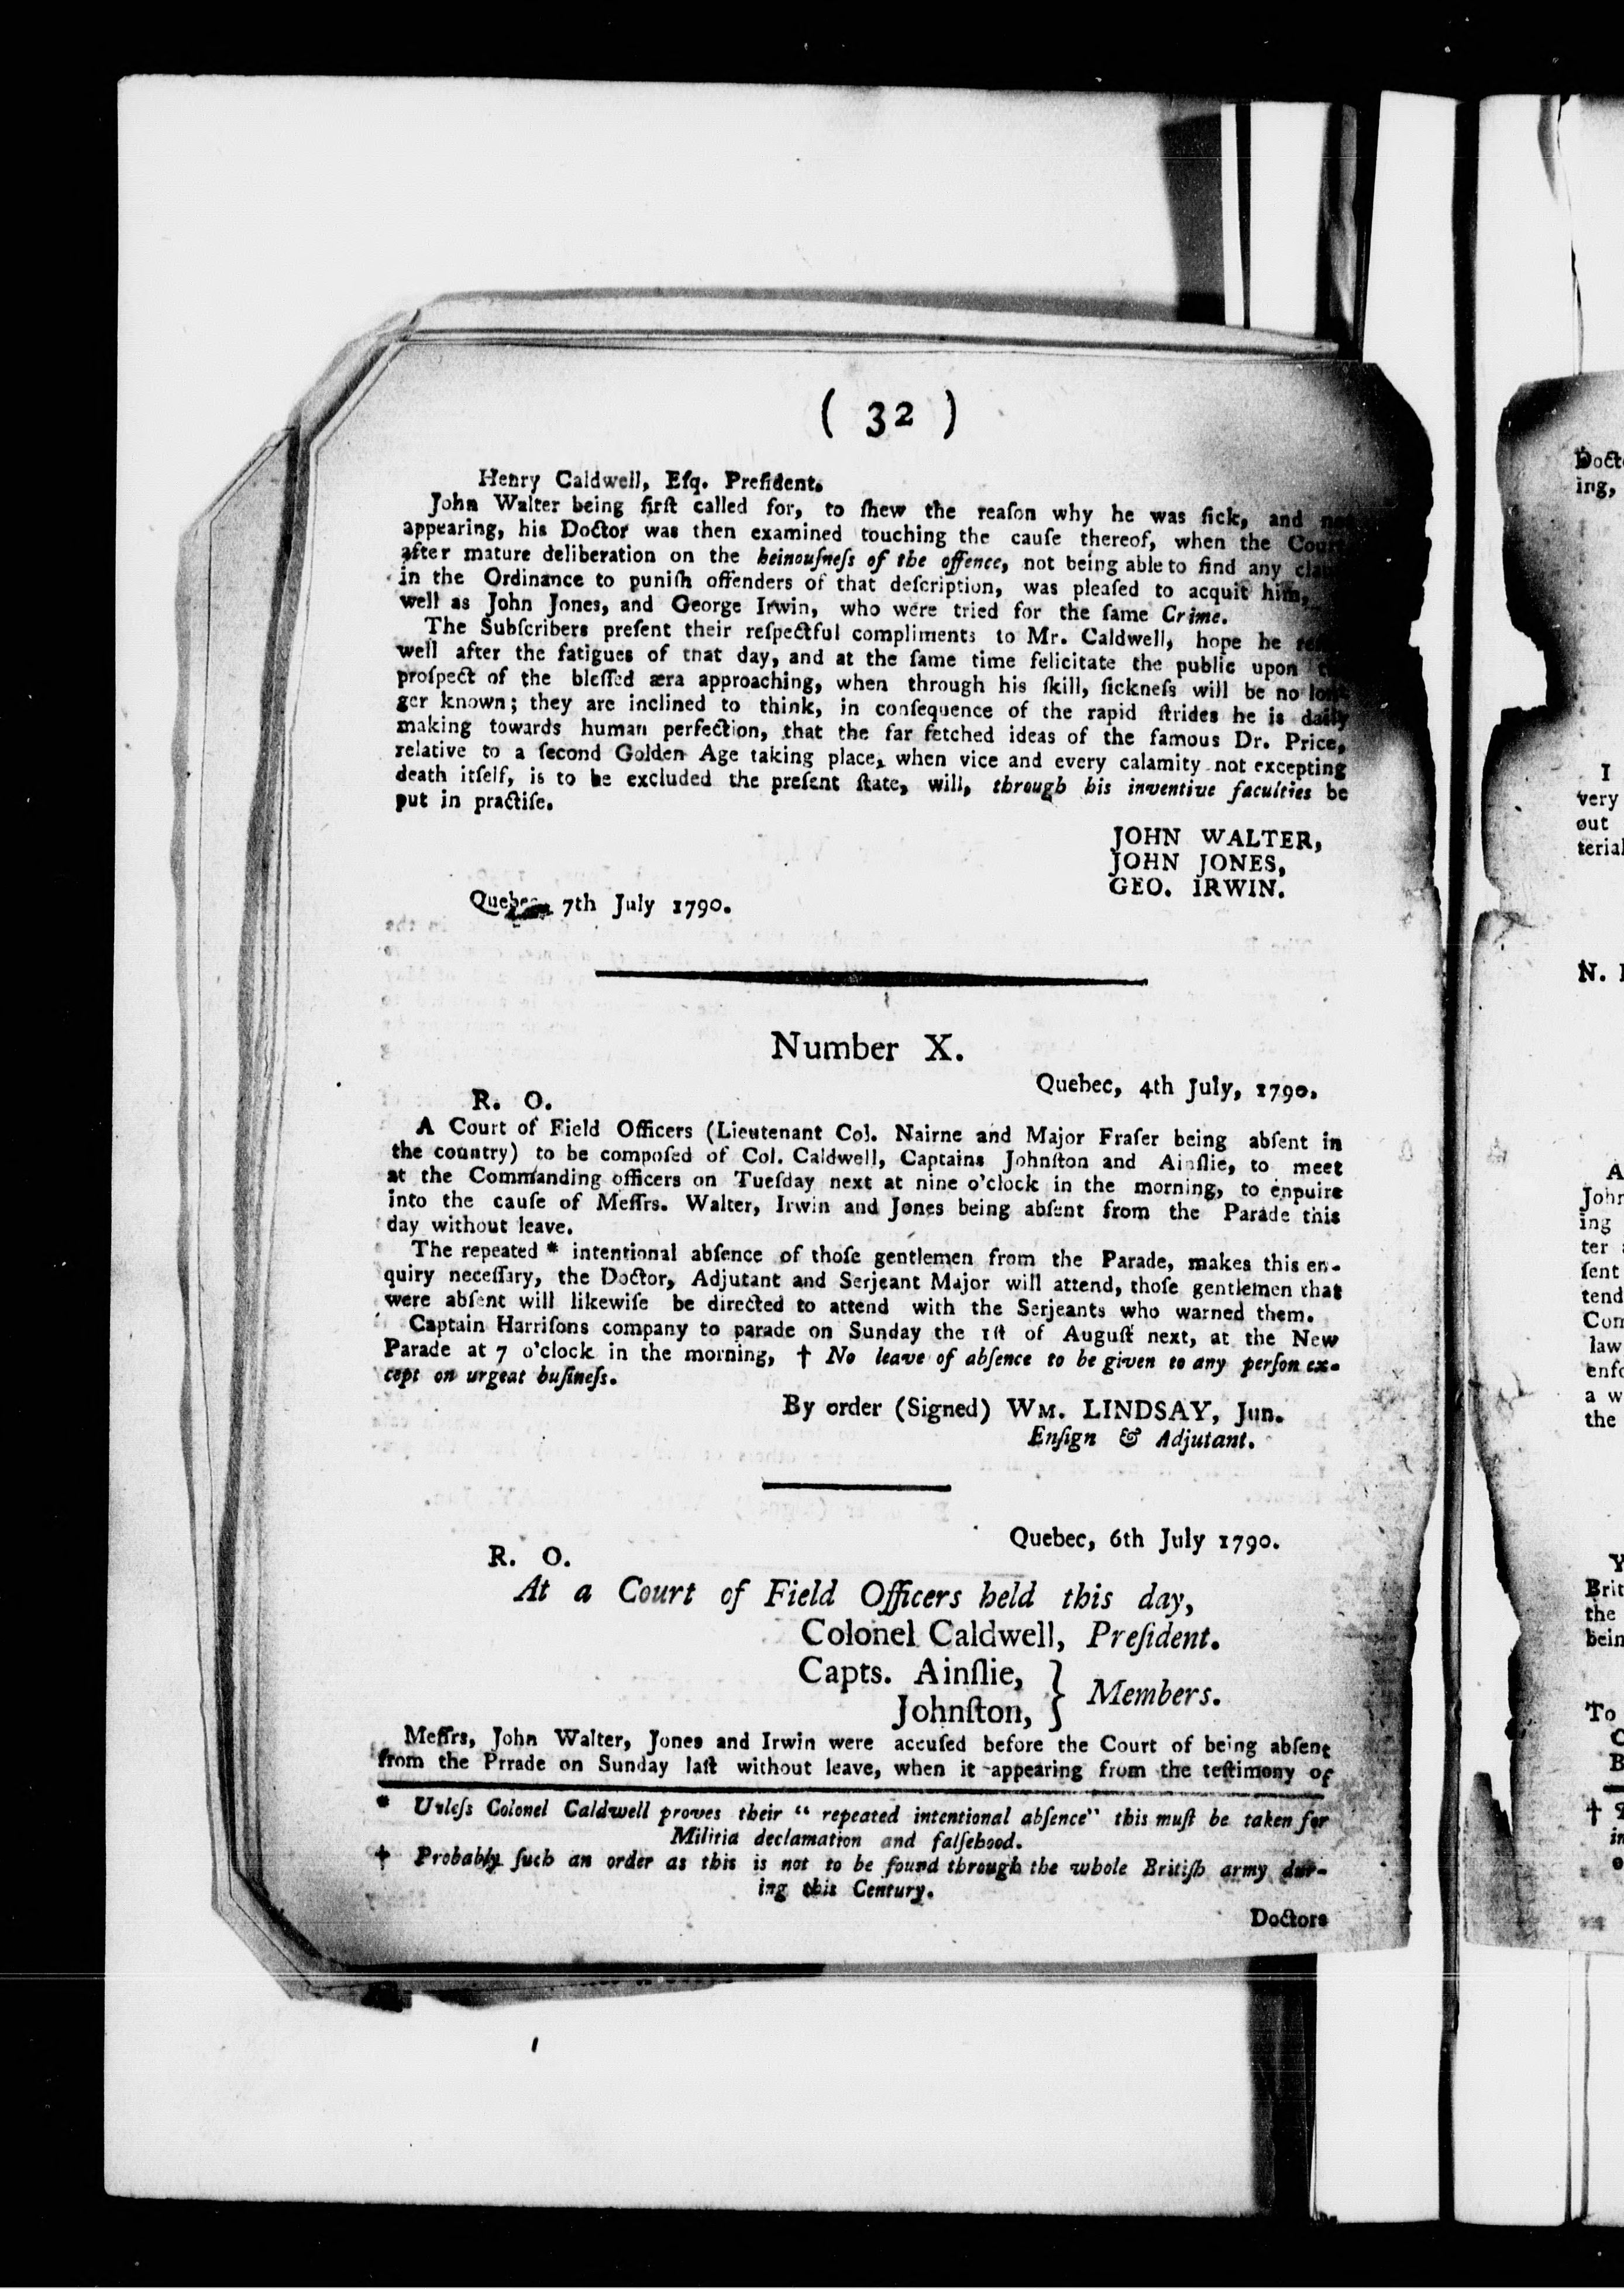 ( 32 )
Henry Caldwell, Eſq. Preſident.
John Walter being firſt called for, to ſhew the reaſon why he was ſick, and
appearing, his Doctor was then examined touching the cauſe thereof, when the
after mature deliberation on the heinouſneſs of the offence, not being able to find any
in the Ordinance to puniſh offenders of that deſcription, was pleaſed to acquit him,
well as John Jones, and George Irwin, who were tried for the ſame Crime.
The Subſcribers preſent their reſpectful compliments to Mr. Caldwell, hope he
well after the fatigues of that day, and at the ſame time felicitate the public upon
proſpect of the bleſſed æra approaching, when through his ſkill, ſickneſs will be no lon-
ger known; they are inclined to think, in conſequence of the rapid ſtrides he is daily
making towards human perfection, that the far fetched ideas of the famous Dr. Price,
relative to a ſecond Golden Age taking place, when vice and every calamity not excepting
death itſelf, is to be excluded the preſent ſtate, will, through his inventive faculties be
put in practiſe.
JOHN WALTER,
JOHN JONES,
GEO. IRWIN.
Quebec 7th July 1790.
Number X.
Quebec, 4th July, 1790.
R. O.
A Court of Field Officers (Lieutenant Col. Nairne and Major Fraſer being abſent in
the country) to be compoſed of Col. Caldwell, Captains Johnſton and Ainſlie, to meet
at the Commanding officers on Tueſday next at nine o'clock in the morning, to enpuire
into the cauſe of Meſſrs. Walter, Irwin and Jones being abſent from the Parade this
day without leave.
The repeated * intentional abſence of thoſe gentlemen from the Parade, makes this en-
quiry neceſſary, the Doctor, Adjutant and Serjeant Major will attend, thoſe gentlemen that
were abſent will likewiſe be directed to attend with the Serjeants who warned them.
Captain Harriſons company to parade on Sunday the 1ſt of Auguſt next, at the New
Parade at 7 o'clock in the morning, † No leave of abſence to be given to any perſon ex-
cept on urgeat buſineſs.
By order (Signed) WM. LINDSAY, Jun.
Enſign & Adjutant.
Quebec, 6th July 1790.
R. O.
At a Court of Field Officers held this day,
Colonel Caldwell, Preſident.
Capts. Ainſlie, } Members.
Johnſton,
Meſſrs, John Walter, Jones and Irwin were accuſed before the Court of being abſent
from the Prrade on Sunday laſt without leave, when it appearing from the teſtimony of
* Unleſs Colonel Caldwell proves their "repeated intentional abſence" this muſt be taken for
Militia declamation and falſehood.
† Probably ſuch an order as this is not to be found through the whole Britiſh army dur-
ing this Century.
Doctors
ing,
I
very
out
N.
A
ing
ter
ſent
tend
law
a w
the
the
To
†